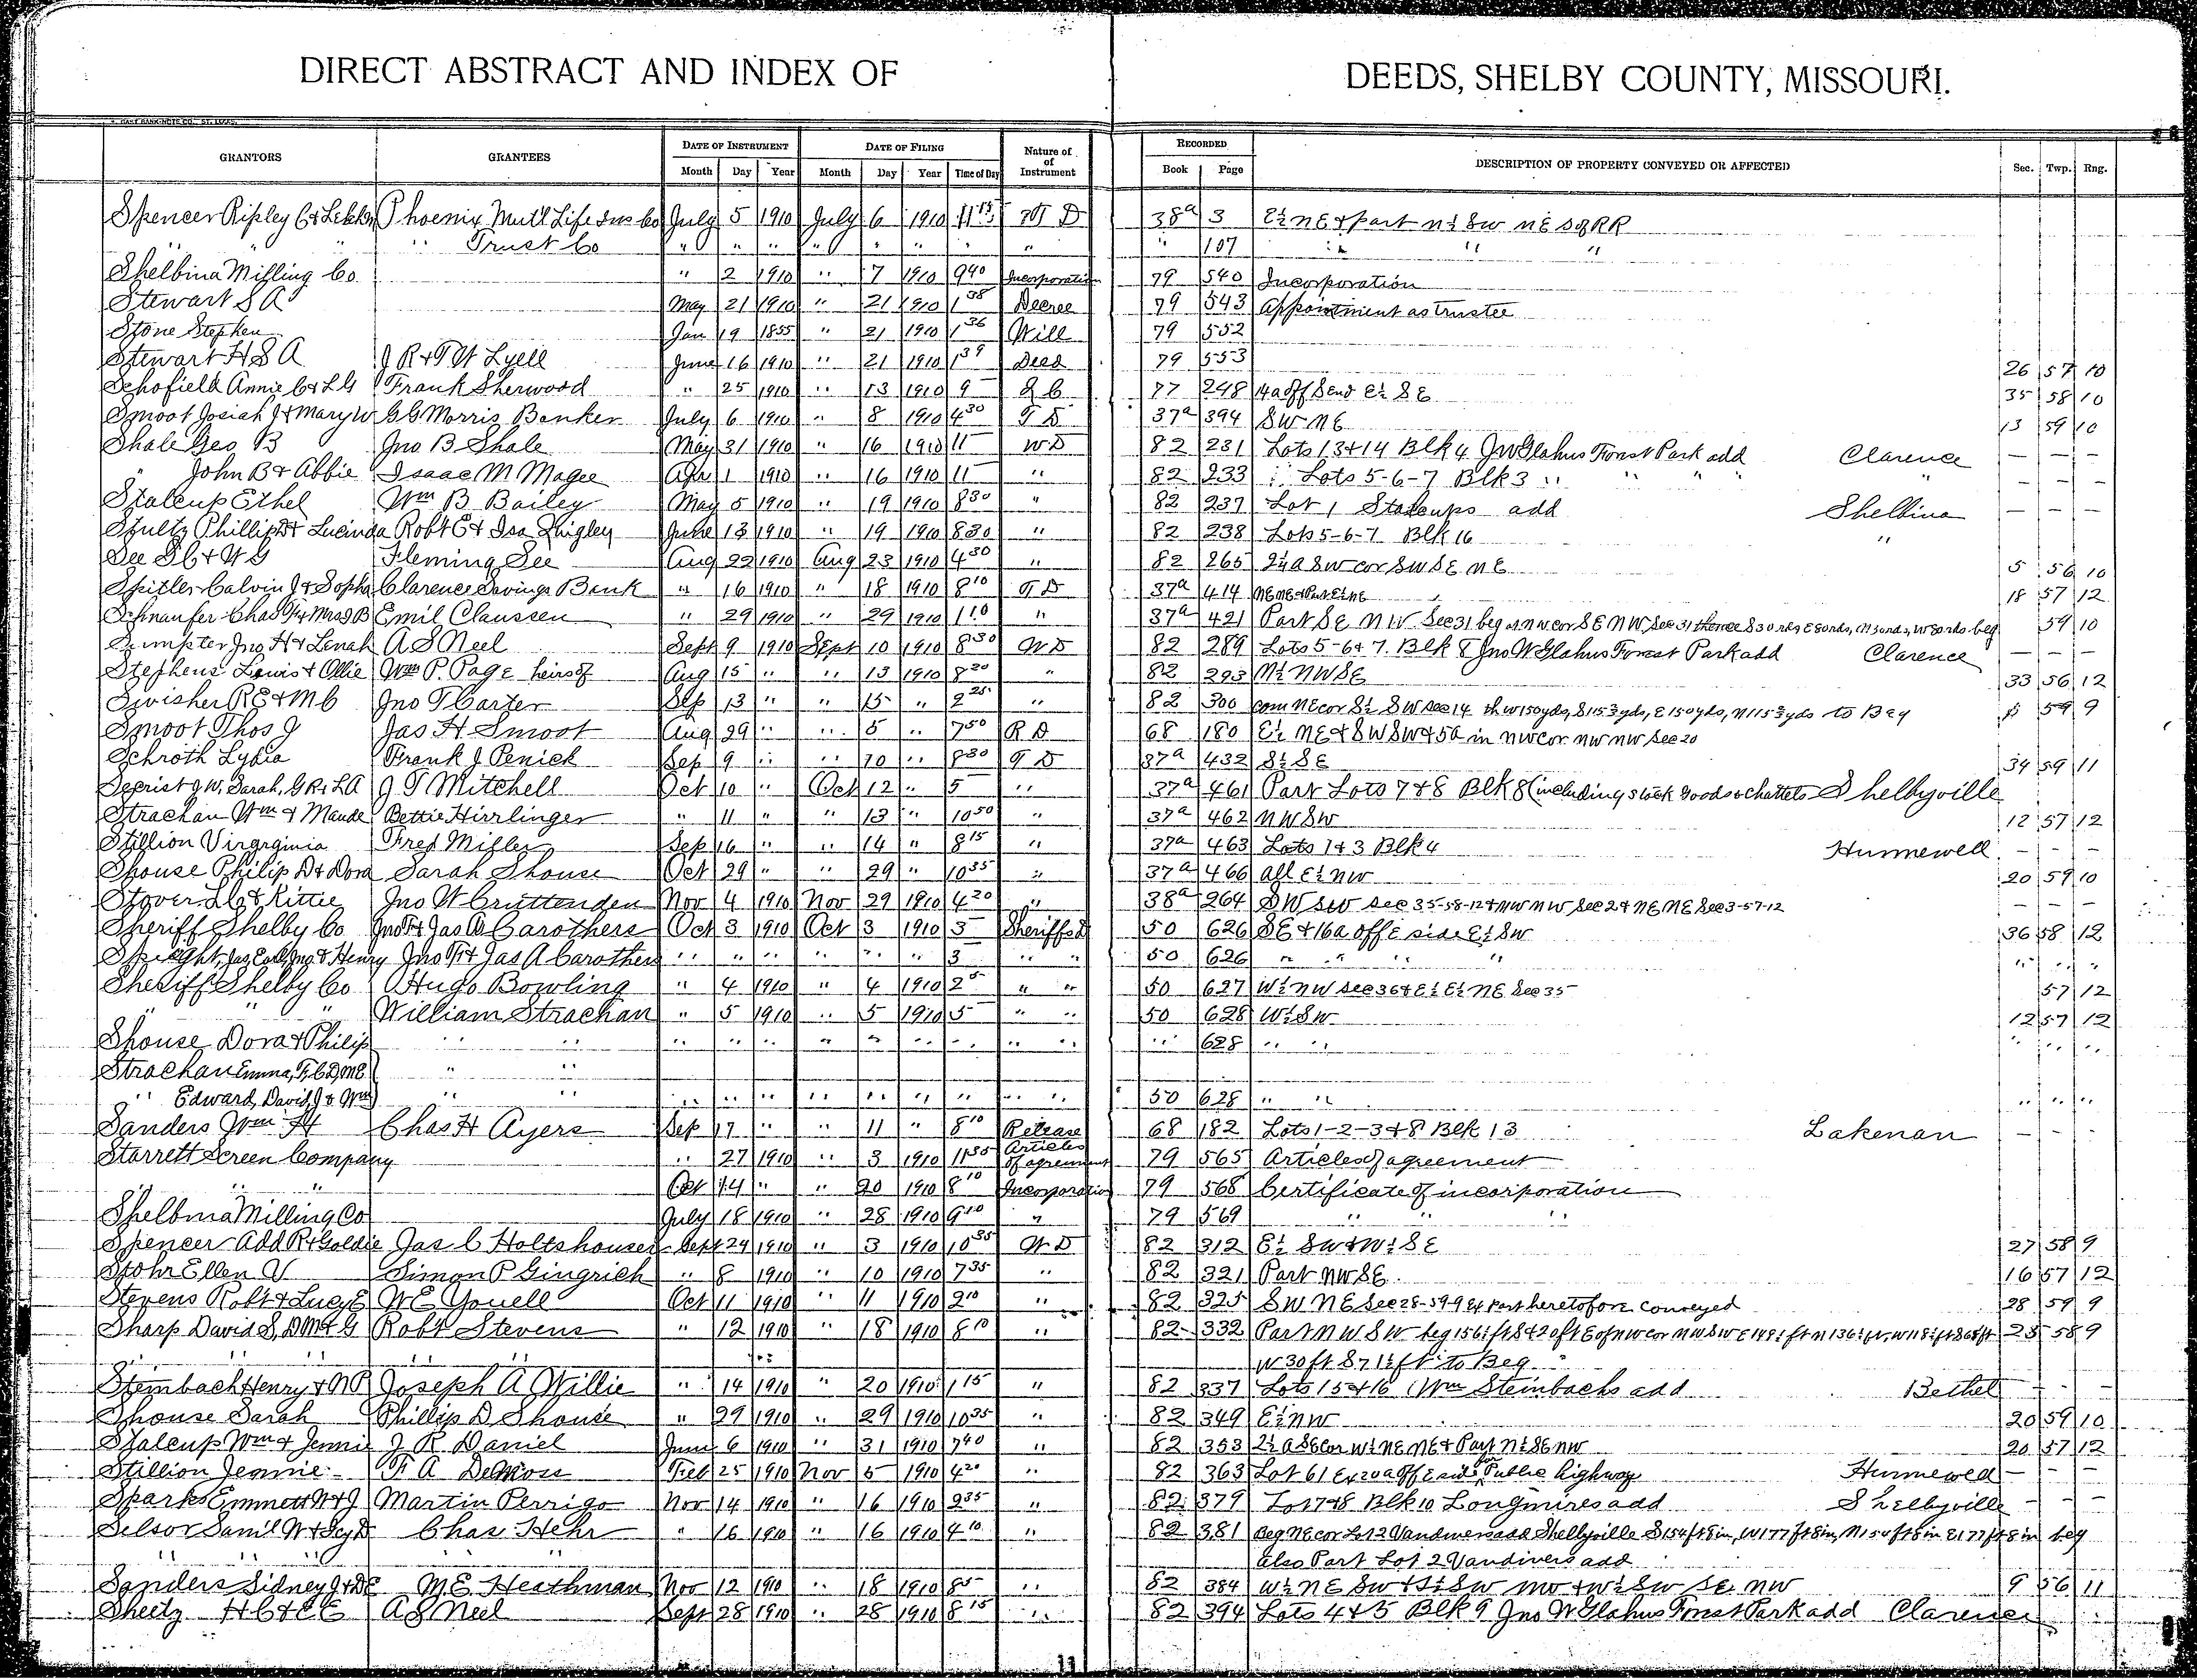 DIRECT ABSTRACT AND INDEX OF DEEDS, SHELBY COUNTY, MISSOURI.
GRANTORS GRANTEES DATE OF INSTRUMENT DATE OF FILING Nature of of Instrument RECORDED DESCRIPTION OF PROPERTY CONVEYED OR AFFECTED Sec. Twp. Rng.
Month Day Year Month Day Year Time of Day Book Page
Spencer Ripley C & Phoenix Mutl Life Ins Co July 5 1910 July 6 1910 11 15 D 38a 3 E½ NE & Part N½ SW NE S of RR
" " " " Trust Co " " " " " " " " " 107 " " "
Shelbina Milling Co " 2 1910 " 7 1910 9 40 Incorporation 79 540 Incorporation
Stewart S A May 21 1910 " 21 1910 1 38 Decree 79 543 Appointment as trustee
Stone Stephen Jan 19 1855 " 21 1910 1 36 Will 79 552
Stewart H S A J R & T W Lyell June 16 1910 " 21 1910 1 39 Deed 79 553 26 57 10
Schofield Annie C & L G Frank Sherwood " 25 1910 " 13 1910 9 Q C 77 248 14a off S end E½ SE 35 58 10
Smoot Josiah J & Mary W G G Morris Banker July 6 1910 " 8 1910 4 30 T D 37a 394 SW NE 13 59 10
Shale Geo B Jno B Shale May 31 1910 " 16 1910 11 W D 82 231 Lots 13 & 14 Blk 4 Jno W Glahns Forest Park add Clarence — — —
" John B & Abbie Isaac M Magee Apr 1 1910 " 16 1910 11 " 82 233 " Lots 5-6-7 Blk 3 " " " " — — —
Stalcup Ethel Wm B Bailey May 5 1910 " 19 1910 8 30 " 82 237 Lot 1 Stalcups add Shelbina — — —
Stultz Phillip D & Lucinda Robt E & Isa Quigley June 13 1910 " 19 1910 8 30 " 82 238 Lots 5-6-7 Blk 16 "
See S C & W G Fleming See Aug 22 1910 Aug 23 1910 4 30 " 82 265 2¼ A SW cor SW SE NE 5 56 10
Spitler Calvin J & Sopha Clarence Savings Bank " 16 1910 " 18 1910 8 10 T D 37a 414 NE NE & Part E½ NE 18 57 12
Schnaufer Chas F & Mrs J B Emil Claussen " 29 1910 " 29 1910 1 10 " 37a 421 Part SE NW Sec 31 beg at NW cor SE NW Sec 31 thence S 30 rds, E 80 rds, N 30 rds, W 80 rds beg 59 10
Sumpter Jno H & Lenah A S Neel Sept 9 1910 Sept 10 1910 8 30 W D 82 289 Lots 5-6 & 7 Blk 8 Jno W Glahns Forest Park add Clarence — — —
Stephens Lewis & Ollie Wm P. Page heirs of Aug 15 " " 13 1910 8 20 " 82 293 N½ NW SE 33 56 12
Swisher R E & M C Jno T Carter Sep 13 " " 15 " 2 25 " 82 300 com NE cor S½ SW Sec 14 th W 150 yds, S 115⅔ yds, E 150 yds, N 115⅔ yds to Beg 59 9
Smoot Thos J Jas H Smoot Aug 29 " " 5 " 7 50 R D 68 180 E½ NE & SW SW & 5a in NW cor NW NW Sec 20
Schroth Lydia Frank J Penick Sep 9 " " 10 " 8 30 T D 37a 432 S½ SE 34 59 11
Secrist J W, Sarah, G R & L A J T Mitchell Oct 10 " Oct 12 " 5 " 37a 461 Part Lots 7 & 8 Blk 8 (including stock goods & chattels Shelbyville
Strachan Wm & Maude Bettie Hirrlinger " 11 " " 13 " 10 50 " 37a 462 NW SW 12 57 12
Stillion Virgrginia Fred Mifler Sep 16 " " 14 " 8 15 " 37a 463 Lots 1 & 3 Blk 4 Hunnewell — — —
Shouse Philip D & Dora Sarah Shouse Oct 29 " " 29 " 10 35 " 37a 466 all E½ NW 20 59 10
Stover L C & Kittie Jno W Crittenden Nov 4 1910 Nov 29 1910 4 20 " 38a 264 SW SW Sec 35-58-12 & NW NW Sec 2 & NE NE Sec 3-57-12 — — —
Sheriff Shelby Co Jno F & Jas A Carothers Oct 3 1910 Oct 3 1910 3 Sheriffs D 50 626 SE & 16a off E side E½ SW 36 58 12
Henry Jno F & Jas A Carothers " " " " " " 3 " " 50 626 " " " " " " "
Sheriff Shelby Co Hugo Bowling " 4 1910 " 4 1910 2 5 " " 50 627 W½ NW Sec 36 & E½ E½ NE Sec 35 57 12
" " " William Strachan " 5 1910 " 5 1910 5 " " 50 628 W½ SW 12 57 12
Shouse Dora & Philip " " " " " " " " " " " " 628 " " " " "
Strachan Emma, F, C D, M E " "
" Edward, David, J & Wm " " " " " " " " " " " 50 628 " " " " "
Sanders Wm H Chas H Ayers Sep 17 " " 11 " 8 10 Release 68 182 Lots 1-2-3 & 8 Blk 13 Lakenan — — —
Starrett Screen Company " 27 1910 " 3 1910 11 35 Articles of agreement 79 565 Articles of agreement
" " " Oct 14 " " 20 1910 8 10 Incorporation 79 568 Certificate of incorporation
Shelbina Milling Co July 18 1910 " 28 1910 9 10 " 79 569 " " "
Spencer Add R & Goldie Jas C Holtshouser Sept 24 1910 " 3 1910 10 35 W D 82 312 E½ SW & W½ SE 27 58 9
Stohr Ellen V Simon P Gingrich " 8 1910 " 10 1910 7 35 " 82 321 Part NW SE 16 57 12
Stevens Robt & Lucy E W E Youell Oct 11 1910 " 11 1910 2 10 " 82 325 SW NE Sec 28-59-9 Ex Part heretofore conveyed 28 59 9
Sharp David S, D M & G Robt Stevens " 12 1910 " 18 1910 8 10 " 82 332 Part NW SW beg 156½ ft S & 20 ft E of NW cor NW SW E 148½ ft N 136½ ft, W 118½ ft S 65 ft 23 58 9
" " " " W 30 ft S 71½ ft to Beg
Steinbach Henry & N P Joseph A Willie " 14 1910 " 20 1910 1 15 " 82 337 Lots 15 & 16 Wm Steinbachs add Bethel — — —
Shouse Sarah Phillip D Shouse " 29 1910 " 29 1910 10 35 " 82 349 E½ NW 20 59 10
Stalcup Wm & Jennie J R Daniel June 6 1910 " 31 1910 7 40 " 82 353 2½ A SE Cor W½ NE NE & Part N½ SE NW 20 57 12
Stillion Jennie F A DeMoss Feb 25 1910 Nov 5 1910 4 20 " 82 363 Lot 61 Ex 20a off E side for Public highway Hunnewell — — —
Sparks Emmett W & J Martin Perrigo Nov 14 1910 " 16 1910 2 35 " 82 379 Lot 7 & 8 Blk 10 Longmires add Shelbyville — — —
Selsor Samil W & Icy D Chas Hehr " 16 1910 " 16 1910 4 10 " 82 381 Beg NE cor Lot 2 Vandivers add Shelbyville S 154 ft 8 in, W 177 ft 8 in, N 154 ft 8 in E 177 ft 8 in beg
" " " " also Part Lot 2 Vandivers add
Sanders Sidney J & D E M. E. Heathman Nov 12 1910 " 18 1910 8 5 " 82 384 W½ NE SW & S½ SW NW & W½ SW SE NW 9 56 11
Sheetz H C & E E A S Neel Sept 28 1910 " 28 1910 8 15 " 82 394 Lots 4 & 5 Blk 9 Jno W Glahns Forest Park add Clarence
11